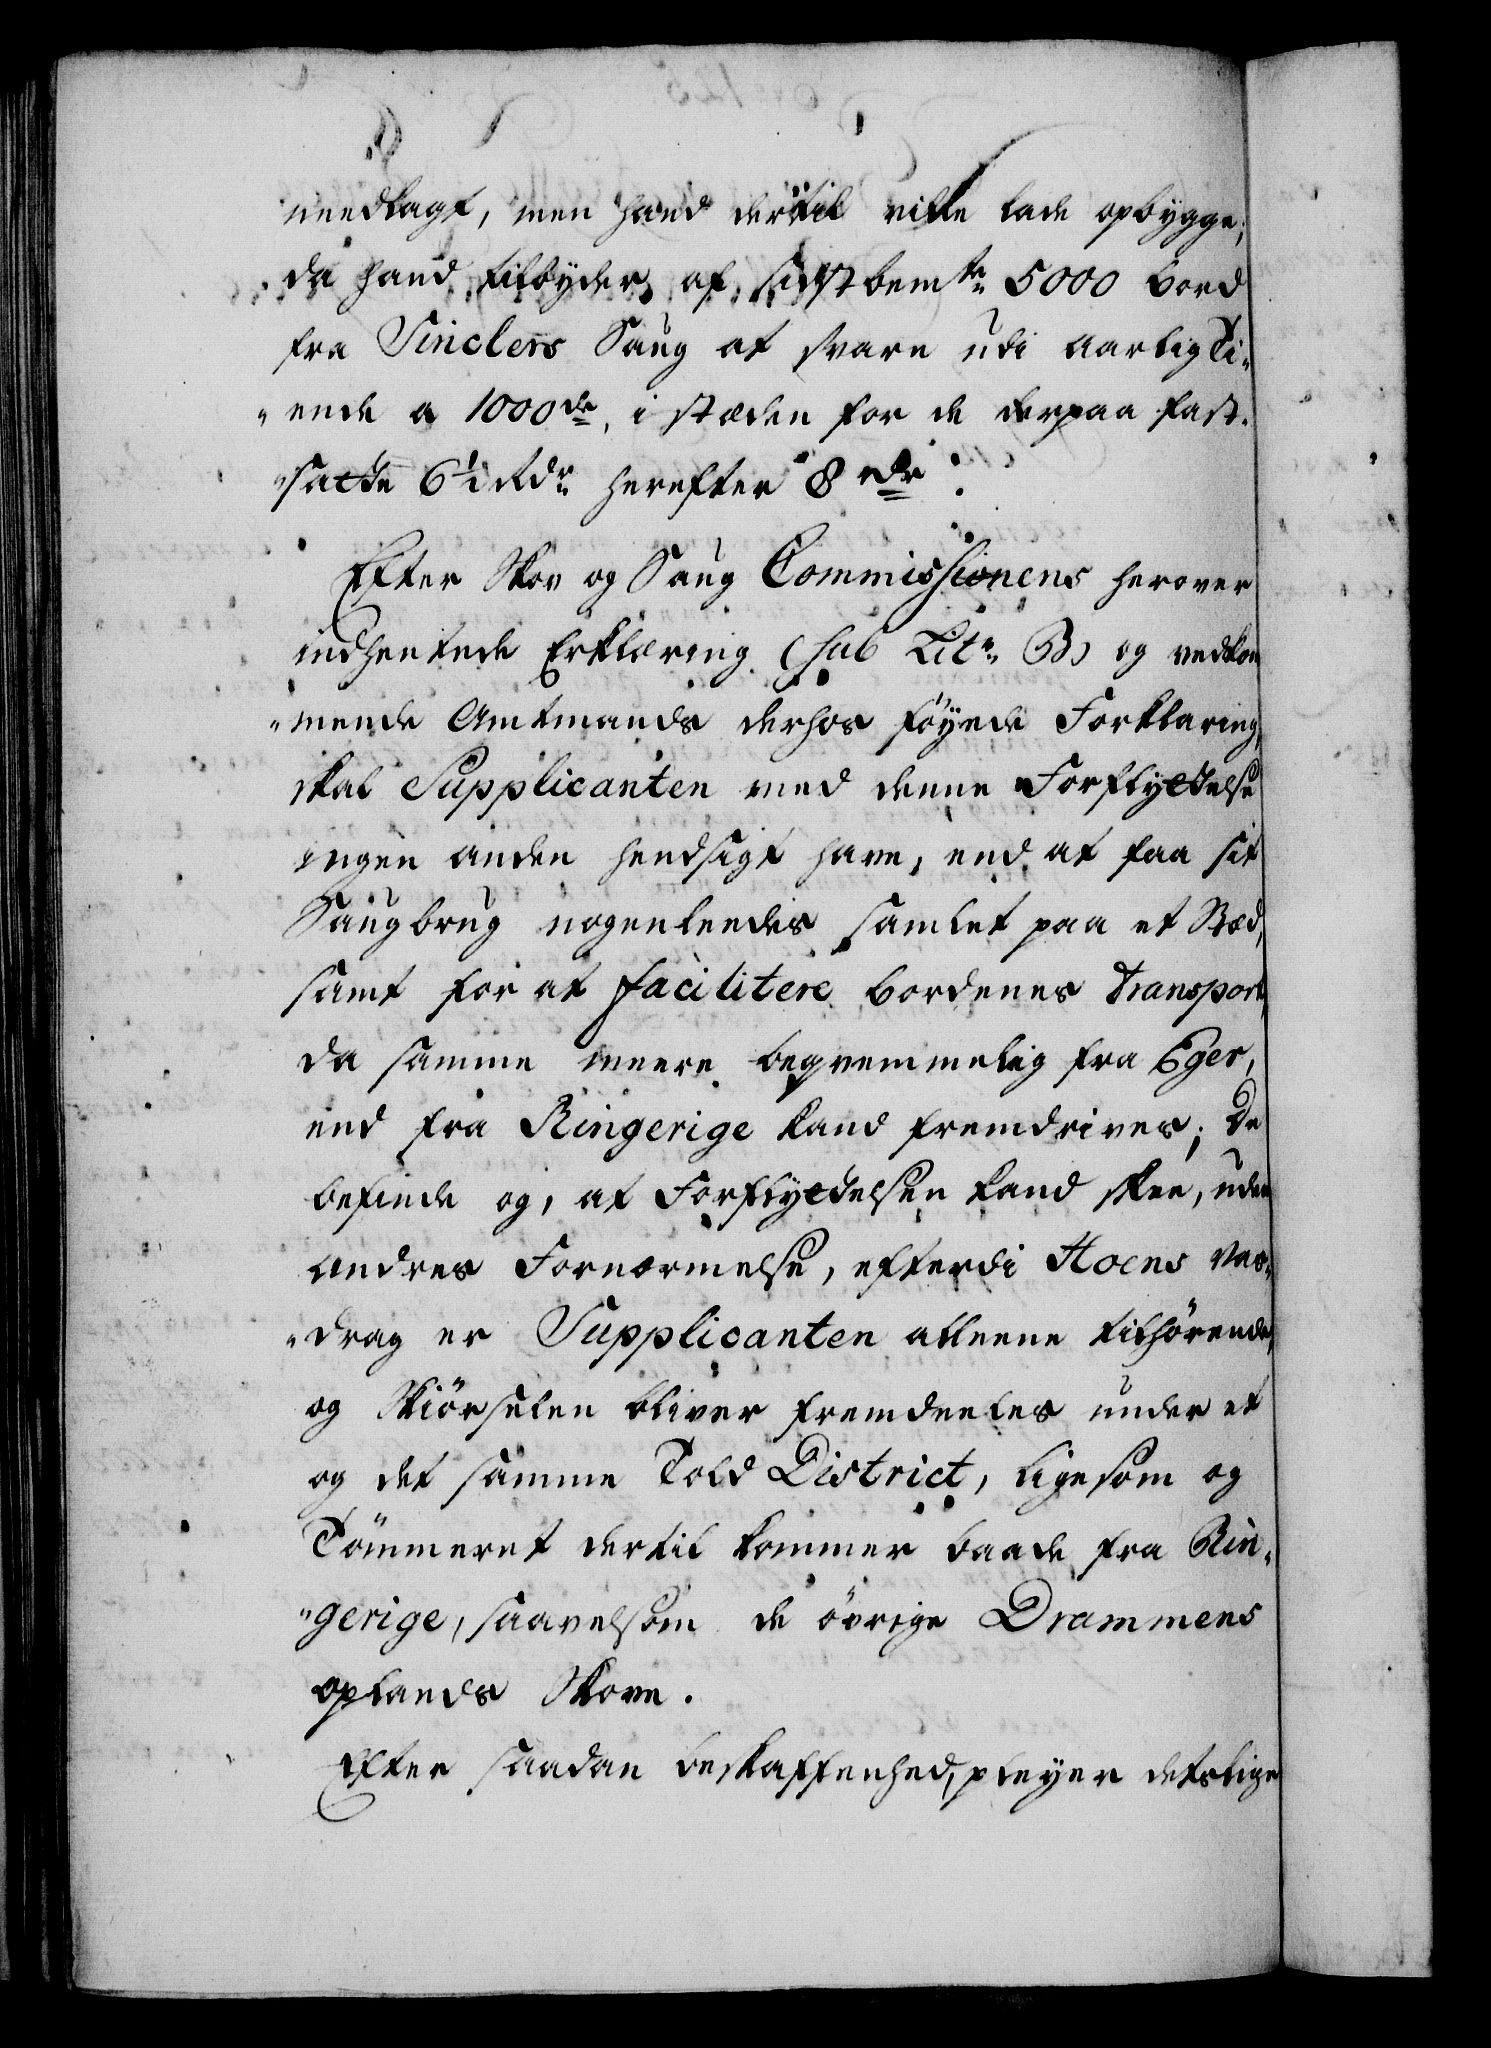 needlagt, men hand dertil ville lade opbygge,
da hand tilbyder af sidstbemte 5000 bord
fra Sinclers Saug at svare udi aarlig Ti-
ende a 1000de, i stæden for de derpaa fast-
satte 6½ Rdr herefter 8 rdr.
Efter Skov og Saug Commissionens herover
indhentede Erklæring (sub Litr B) og vedkom
mende Amtmands derhos föyede Forklaring,
skal Supplicanten med denne Forflyttelse
ingen anden hendsigt have, end at faa sit
Saugbrug nogenleedes samlet paa et Stæd,
samt for at facilitere bordenes Transport,
da samme meere beqvemmelig fra Eger,
end fra Ringerige kand fremdrives; De
befinde og, at Forflyttelsen kand skee, uden
andres Fornærmelse, efterdi Hoens Vas-
drag er Supplicanten alleene tilhörende,
og Skiörselen bliver fremdeeles under et
og det samme Told District, ligesom og
Tömmeret dertil kommer baade fra Rin-
gerige, saavelsom de övrige Drammens
oplands Skove.
Efter saadan beskaffenhed, pleyer detslige